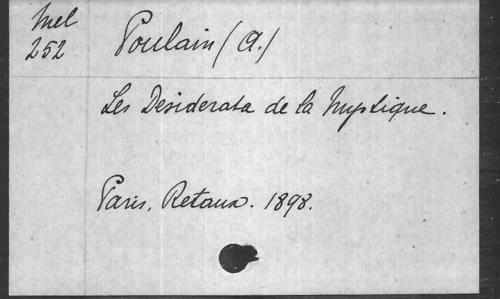 Mel
252
Poulain (A.)
Les Desiderata de la Mystique.
Paris, Retaux. 1898.